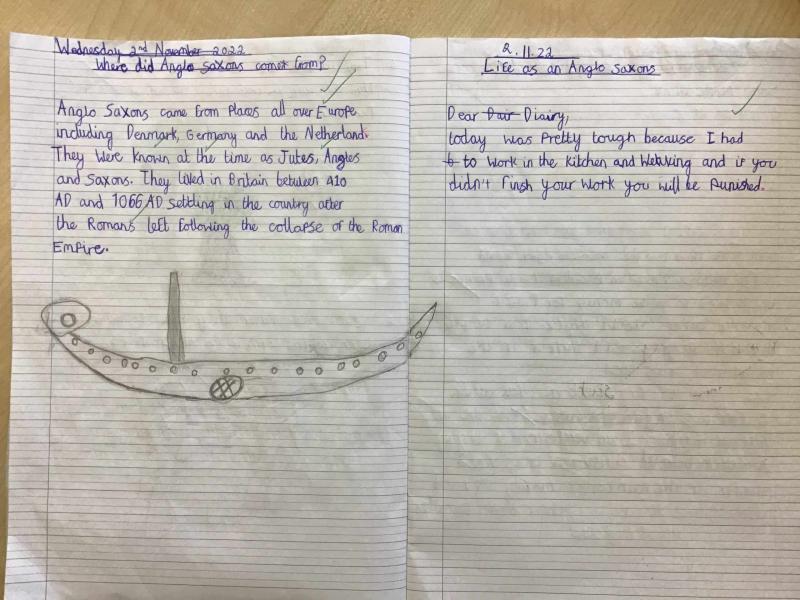 Wednesday 2nd November 2022
Where did Anglo Saxons comet from?
Anglo Saxons came from Places all over Europe
including Denmark, Germany and the Netherland.
They were known at the time as Jutes, Angles
and Saxons. They lived in Britain between 410
AD and 1066 AD settling in the country after
the Romans left following the collapse of the Roman
Empire.
2.11.22
Life as an Anglo Saxons
Dear Dair Diairy,
today was Pretty tough because I had
to work in the kitchen and Weaving and if you
didn't finsh your work you will be Punished.